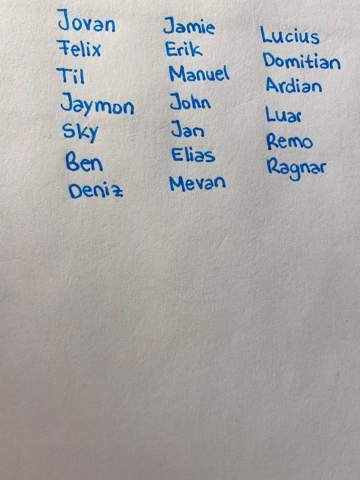 Jovan
Felix
Til
Jaymon
Sky
Ben
Deniz
Jamie
Erik
Manuel
John
Jan
Elias
Mevan
Lucius
Domitian
Ardian
Luar
Remo
Ragnar